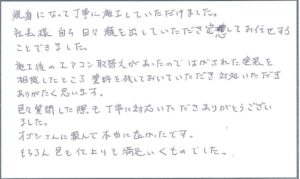 親身になって丁寧に施工していただけました。
社長様 自ら 日々 顔を出していただき安心してお任せする
ことできました。
施工後のエアコン取替えがあったのではがされた塗装を
相談したところ 塗料を残しておいていただき 対処いただき
ありがたく思います。
色々質問した際も丁寧に対応いただきありがとうござい
ました。
オゴシさんに頼んで本当に良かったです。
もちろん 色も仕上りも満足いくものでした。